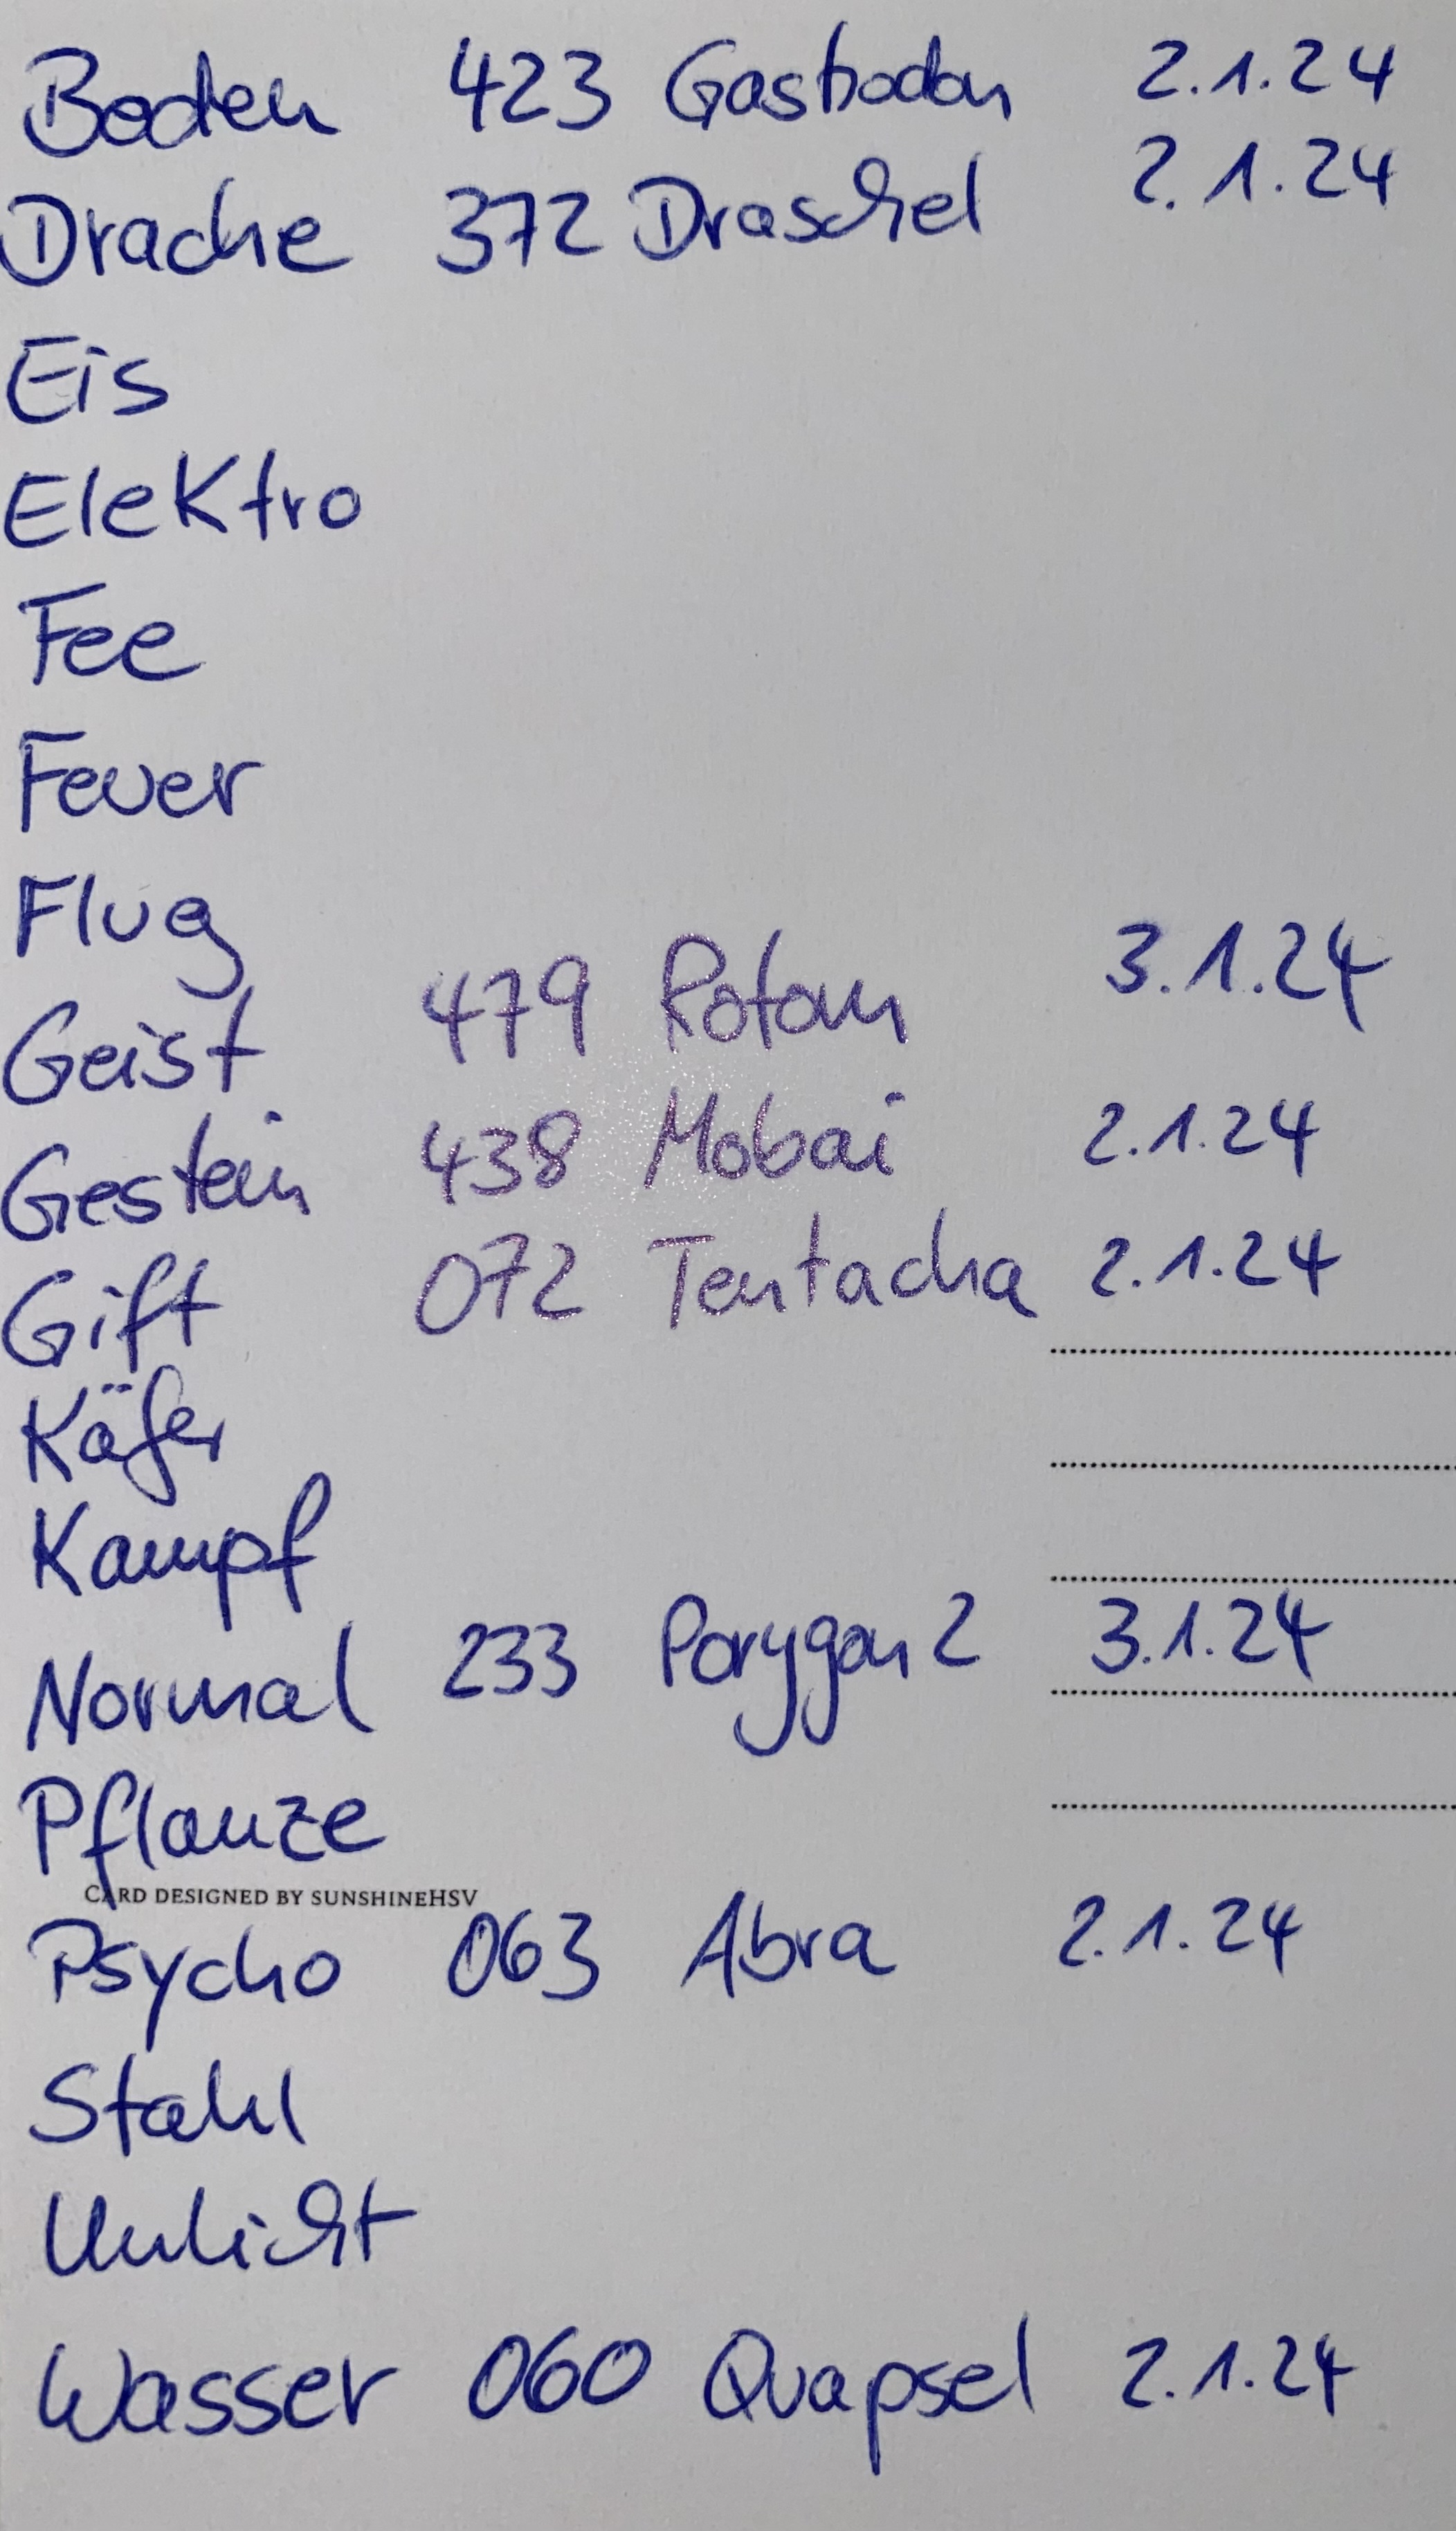 Boden 423 Gastrodon 2.1.24
Drache 372 Draschel 2.1.24
Eis
Elektro
Fee
Feuer
Flug
Geist 479 Rotom 3.1.24
Gestein 438 Mobai 2.1.24
Gift 072 Tentacha 2.1.24
Käfer
Kampf
Normal 233 Porygon2 3.1.24
Pflanze
CARD DESIGNED BY SUNSHINEHSV
Psycho 063 Abra 2.1.24
Stahl
Unlicht
Wasser 060 Quapsel 2.1.24